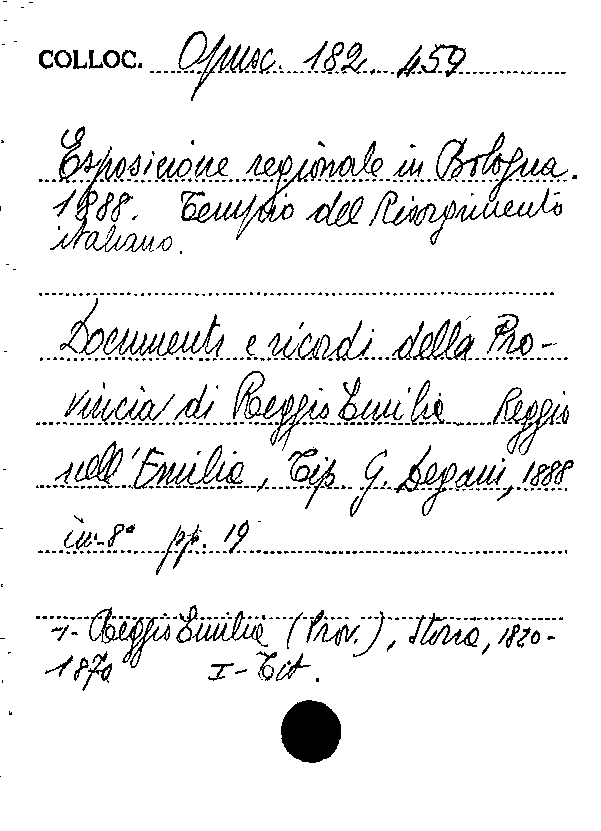 COLLOC. Opusc. 182. 459
Esposizione regionale in Bologna.
1888. Tempio del Risorgimento
italiano.
Documenti e ricordi della Pro-
vincia di Reggio Emilia Reggio
nell'Emilia, Tip. G. Degani, 1888
in-8° pp. 19
1- Reggio Emilia (Prov.), Storia, 1820-
1870 I- Tit.